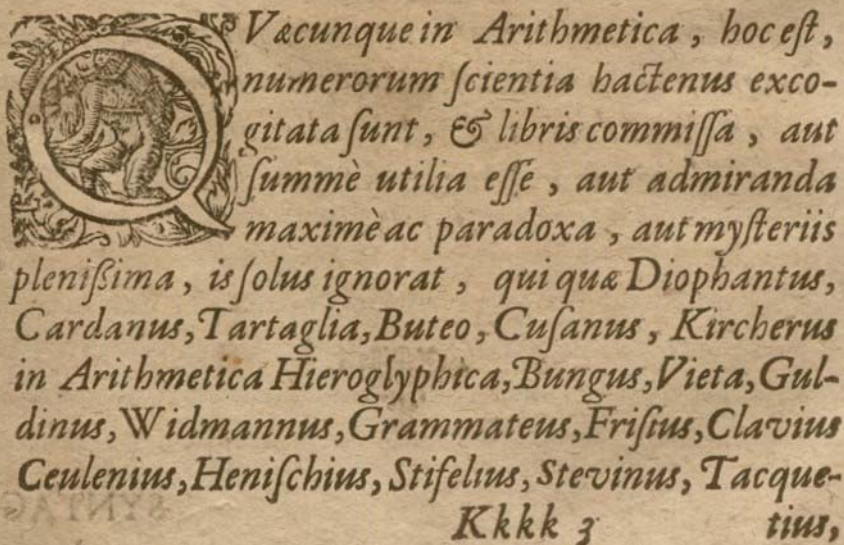 QVæcunque in Arithmetica, hoc eſt,
numerorum ſcientia hactenus exco-
gitata ſunt, & libris commiſſa, aut
ſummè utilia eſſe, aut admiranda
maximè ac paradoxa, aut myſteriis
pleniſsima, is ſolus ignorat, qui quæ Diophantus,
Cardanus, Tartaglia, Buteo, Cuſanus, Kircherus
in Arithmetica Hieroglyphica, Bungus, Vieta, Gul-
dinus, Widmannus, Grammateus, Friſius, Clavius
Ceulenius, Heniſchius, Stifelius, Stevinus, Tacque-
Kkkk 3 tius,